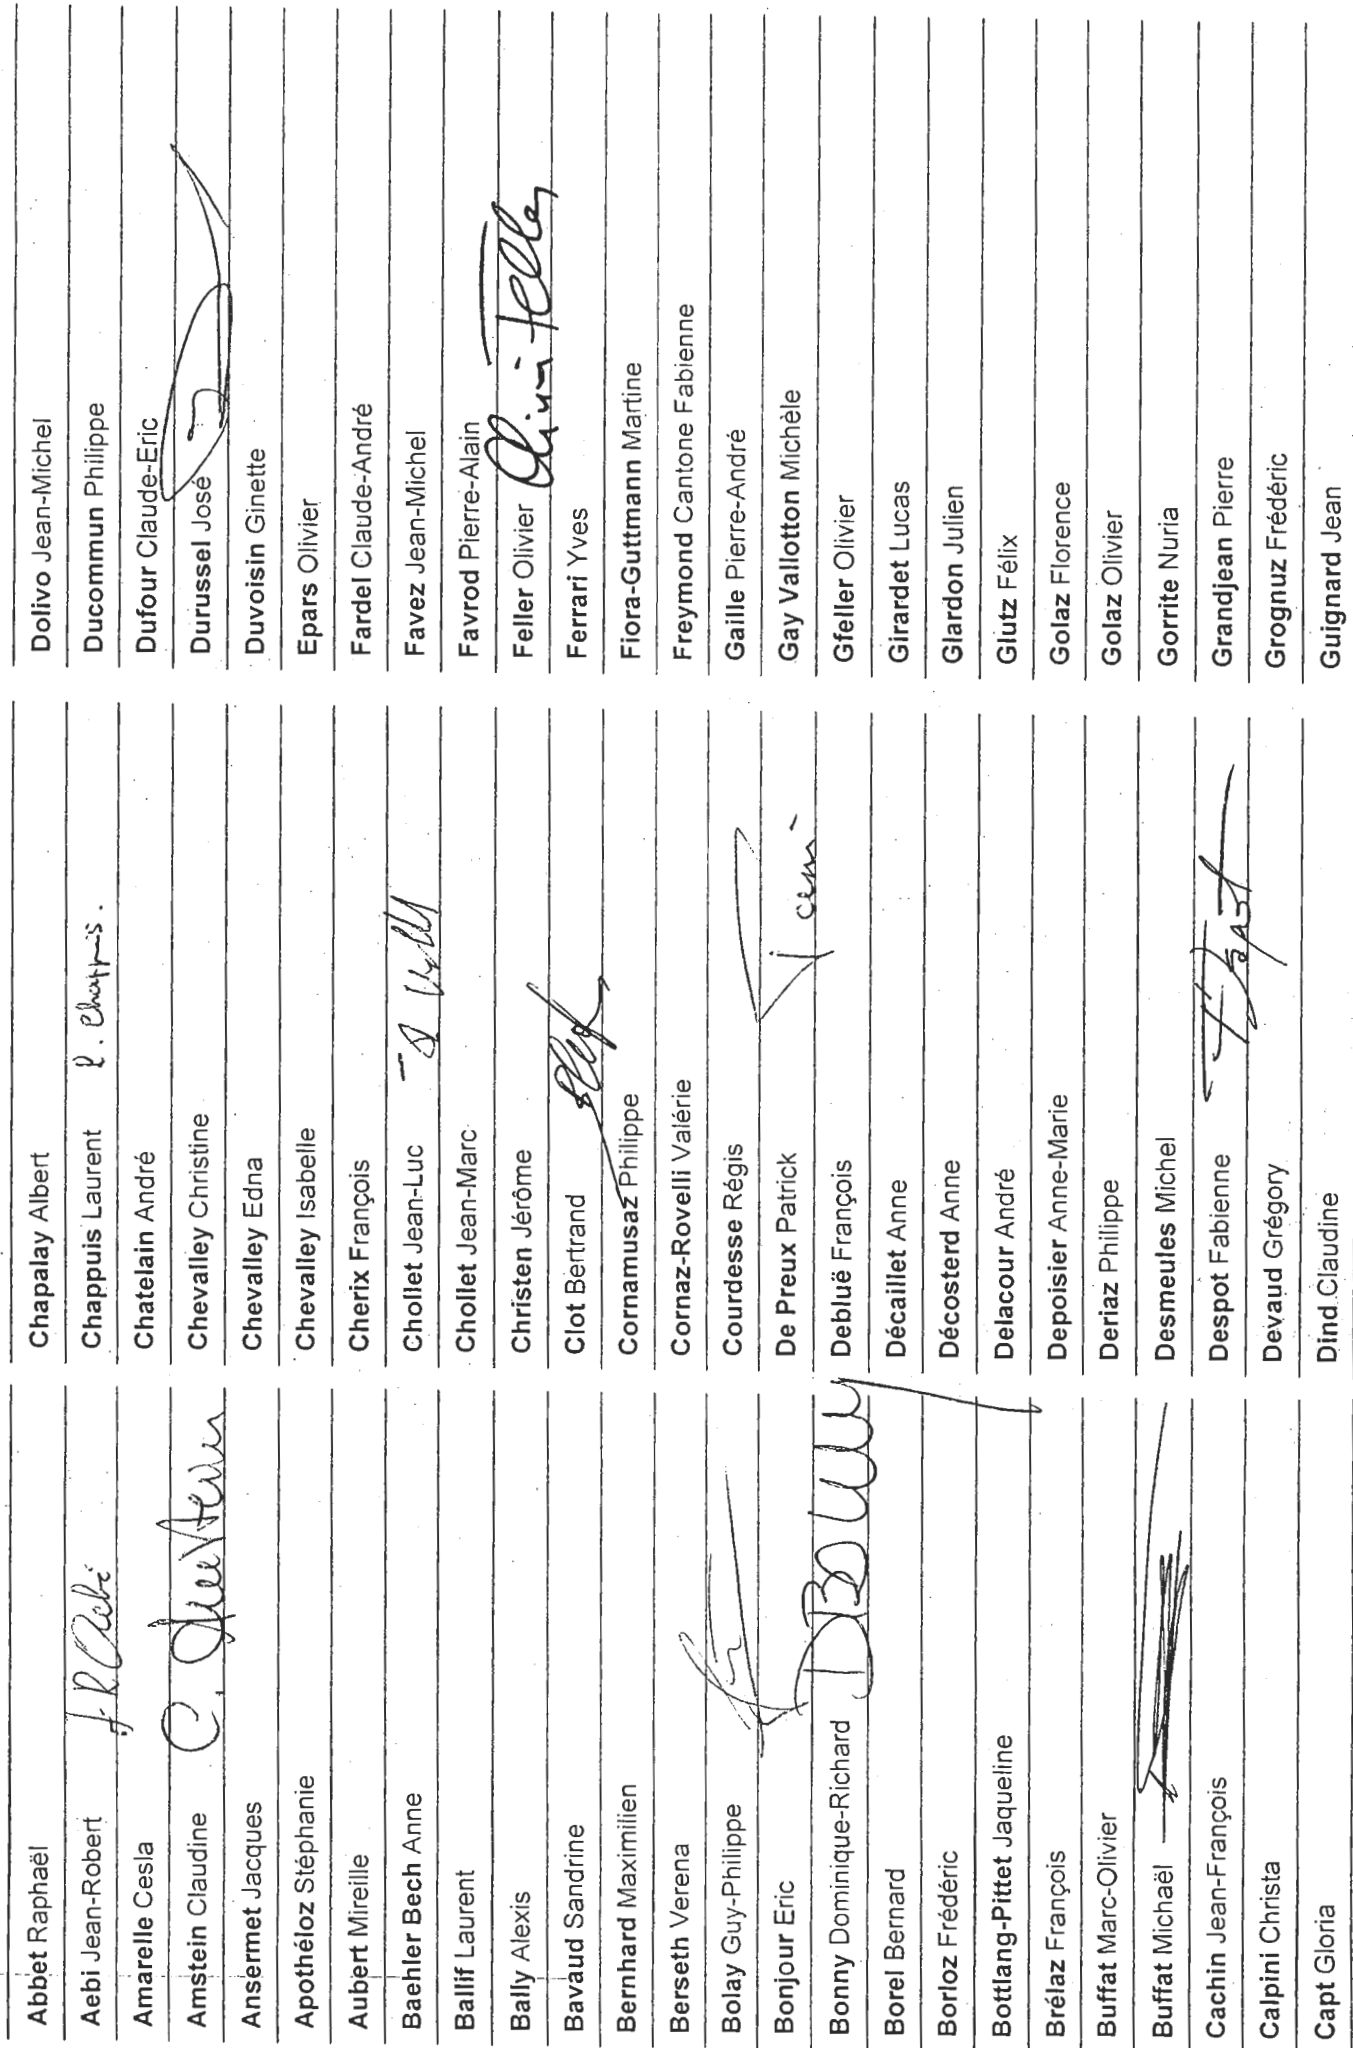 Abbet Raphaël
Aebi Jean-Robert J-R Aebi
Amarelle Cesla
Amstein Claudine C. Amstein
Ansermet Jacques
Apothéloz Stéphanie
Aubert Mireille
Baehler Bech Anne
Ballif Laurent
Bally Alexis
Bavaud Sandrine
Bernhard Maximilien
Berseth Verena
Bolay Guy-Philippe
Bonjour Eric
Bonny Dominique-Richard
Borel Bernard
Borloz Frédéric
Bottlang-Pittet Jaqueline
Brélaz François
Buffat Marc-Olivier
Buffat Michaël
Cachin Jean-François
Calpini Christa
Capt Gloria
Chapalay Albert
Chappuis Laurent L. Chappuis.
Chatelain André
Chevalley Christine
Chevalley Edna
Chevalley Isabelle
Cherix François
Chollet Jean-Luc
Chollet Jean-Marc
Christen Jérôme
Clot Bertrand
Cornamusaz Philippe
Cornaz-Rovelli Valérie
Courdesse Régis
De Preux Patrick
Debluë François
Décaillet Anne
Décosterd Anne
Delacour André
Depoisier Anne-Marie
Deriaz Philippe
Desmeules Michel
Despot Fabienne
Devaud Grégory
Dind Claudine
Dolivo Jean-Michel
Ducommun Philippe
Dufour Claude-Eric
Durussel José
Duvoisin Ginette
Epars Olivier
Fardel Claude-André
Favez Jean-Michel
Favrod Pierre-Alain
Feller Olivier Olivier Feller
Ferrari Yves
Fiora-Guttmann Martine
Freymond Cantone Fabienne
Gaille Pierre-André
Gay Vallotton Michèle
Gfeller Olivier
Girardet Lucas
Glardon Julien
Glutz Félix
Golaz Florence
Golaz Olivier
Gorrite Nuria
Grandjean Pierre
Grognuz Frédéric
Guignard Jean